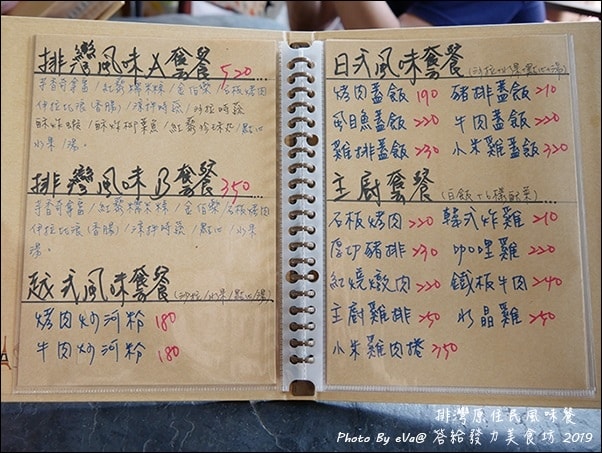 排灣風味A套餐 520
芋香奇拿富/紅藜爆米棒/金佰樂/石板烤肉
伊拉比灰(香腸)/涼拌時蔬/沙拉時蔬
水果/湯。
排灣風味B套餐 350
芋香奇拿富/紅藜爆米棒/金佰樂/石板烤肉
伊拉比灰(香腸)/涼拌時蔬/點心/水果
湯。
越式風味套餐 (沙拉/水果/點心/湯)
烤肉炒河粉 180
牛肉炒河粉 180
日式風味套餐 (沙拉+水果+點心+湯)
烤肉蓋飯 190 豬排蓋飯 210
虱目魚蓋飯 220 牛肉蓋飯 220
雞排蓋飯 230 小米雞蓋飯 320
主廚套餐 (白飯+6樣配菜)
石板烤肉 220 韓式炸雞 210
厚切豬排 230 咖哩雞 220
紅燒燉肉 220 鐵板牛肉 240
主廚雞排 250 水晶雞 250
小米雞肉捲 350
排灣原住民風味餐
Photo By eVa@ 答給發力美食坊 2019